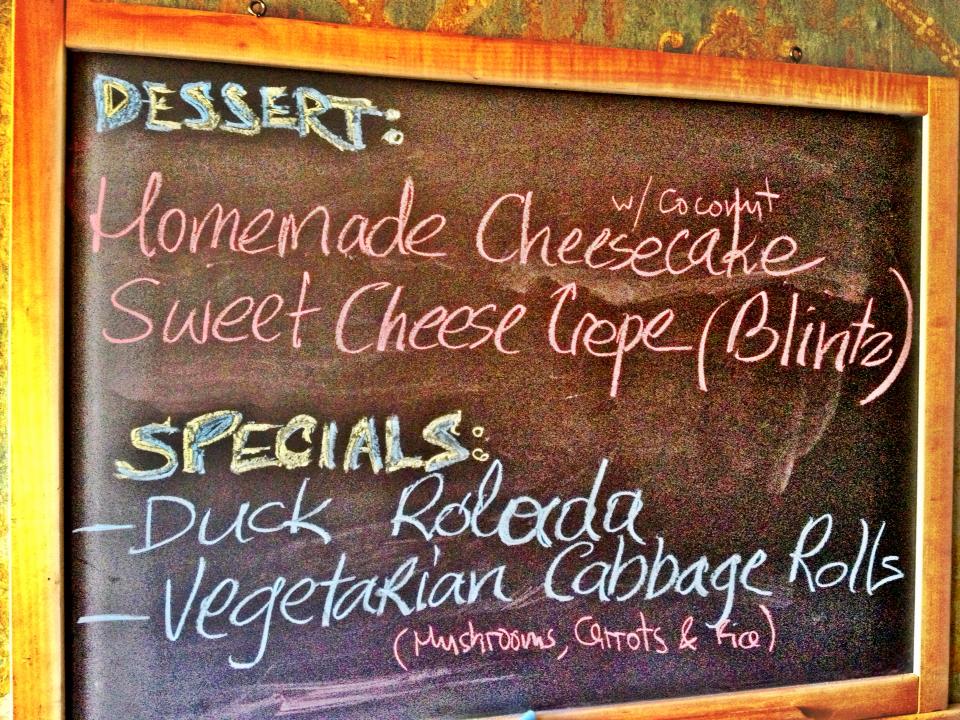 DESSERT:
w/ Coconut
Homemade Cheesecake
Sweet Cheese Crepe (Blintz)
SPECIALS:
- Duck Rolada
- Vegetarian Cabbage Rolls
(Mushrooms, Carrots & Rice)